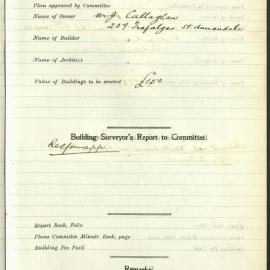 Plan approved by Committee
Name of Owner Wm J. Callaghan
209 Trafalgar St Annandale
Name of Builder "
Name of Architect "
Value of Buildings to be erected £150
Building Surveyor's Report to Committee.
Recommapp
Report Book, Folio
Plans Commitee Minute Book, page
Building Fee Paid
Remarks